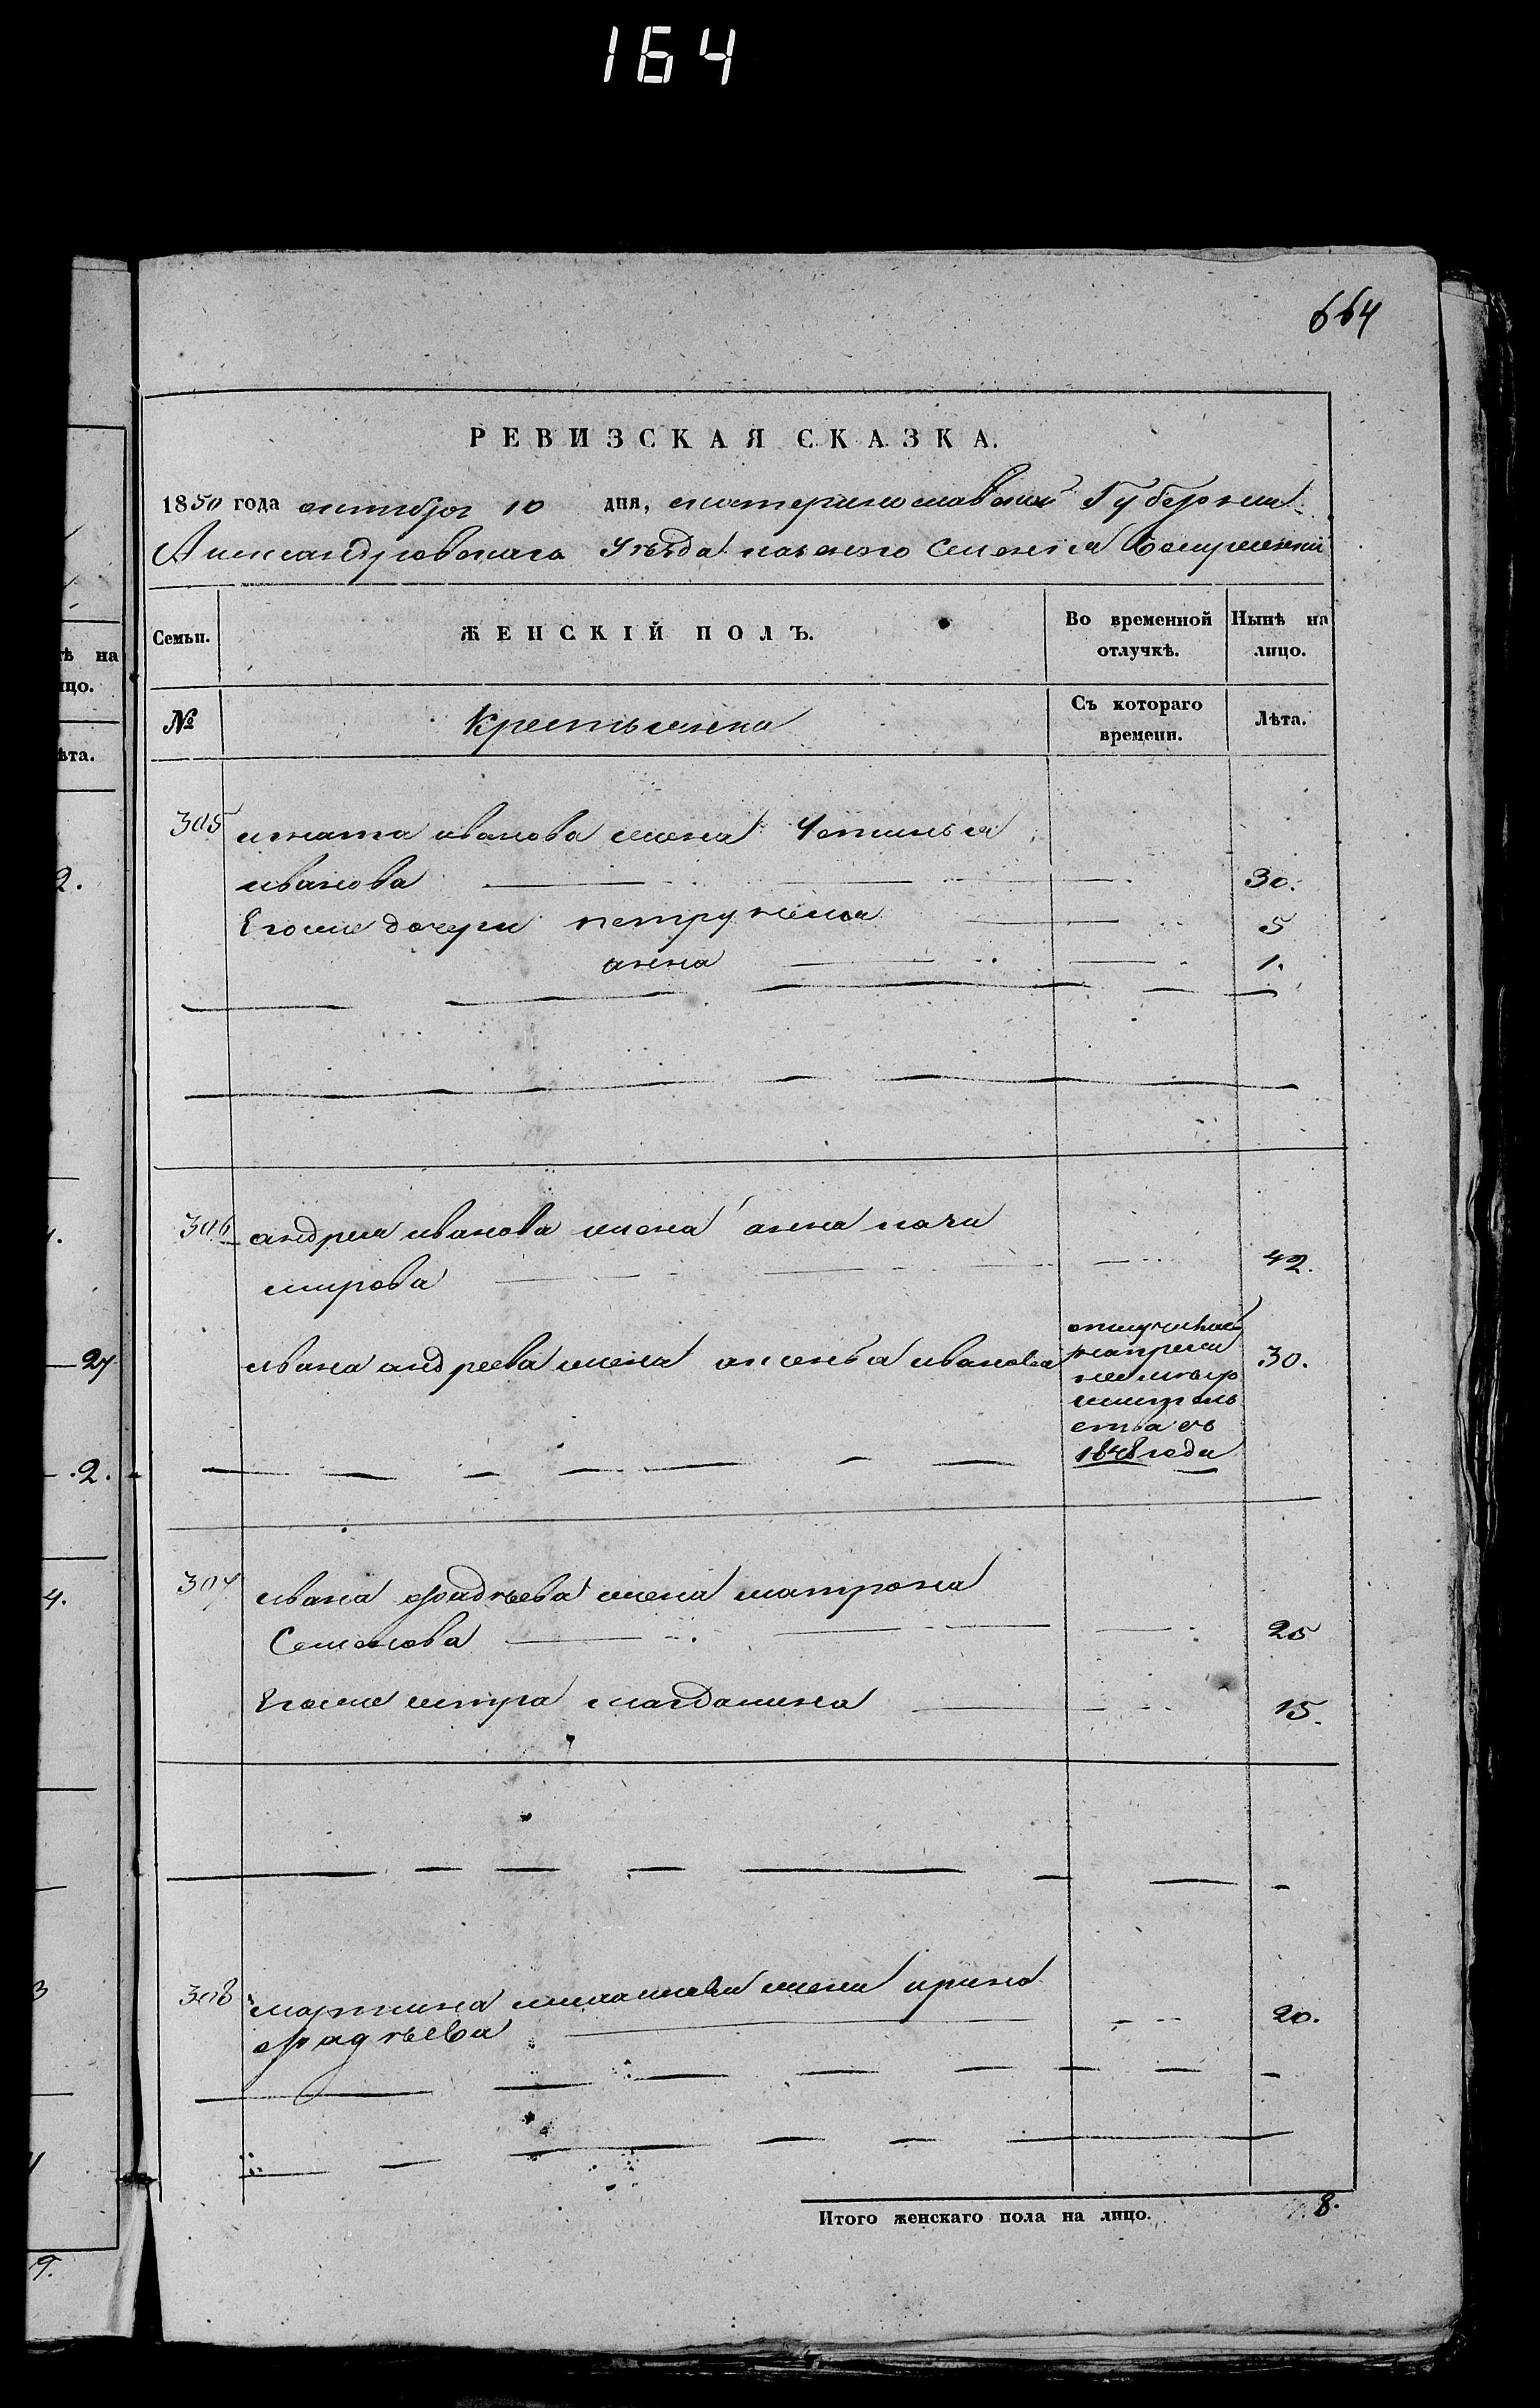 164
664
РЕВИЗСКАЯ СКАЗКА.
1850 года октября 10 дня, екатеринославской Губернии
Александровскаго Уѣзда казеного Селенія Воскресенки
Семьи.
ЖЕНСКІЙ ПОЛЪ.
Во временной отлучкѣ.
Нынѣ на лицо.
№
Крестьянена
Съ котораго времени.
Лѣта.
305 игната иванова жена Устинья
иванова 30.
Егоже дочери петрунеля 5
анна 1.
306 андрея иванова жена анна
42.
ивана андреева жена аксенья иванова 30.
ства съ
1848 года
307 ивана фадѣева жена матрона
Семенова 25
Егоже сестра магдалина 15.
308 мартина жена ирина
фадѣева 20.
Итого женскаго пола на лицо. 8.
ѣ на
ицо.
ѣта.
2.
27
2.
4.
3
9.